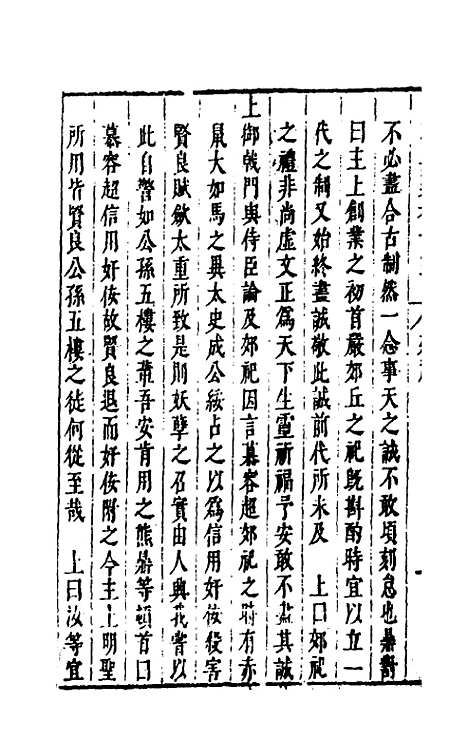 不必盡合古制然一念事天之誠不敢頃刻怠也鼎對
曰主上創業之初首嚴郊丘之祀旣斟酌時宜以立一
代之制又始終盡誠敬此誠前代所未及　上曰郊祀
之禮非尚虛文正為天下生靈祈福予安敢不盡其誠
上御戟門與侍臣論及郊祀因言慕容超郊祀之時有赤
鼠大如馬之異太史成公綏占之以為信用奸佞殺害
賢良賦斂太重所致是則妖孽之召實由人興我嘗以
此自警如公孫五樓之輩吾安肯用之熊鼎等頓首曰
慕容超信用奸佞故賢良退而奸佞附之今主上明聖
所用皆賢良公孫五樓之徒何從至哉　上曰汝等宜